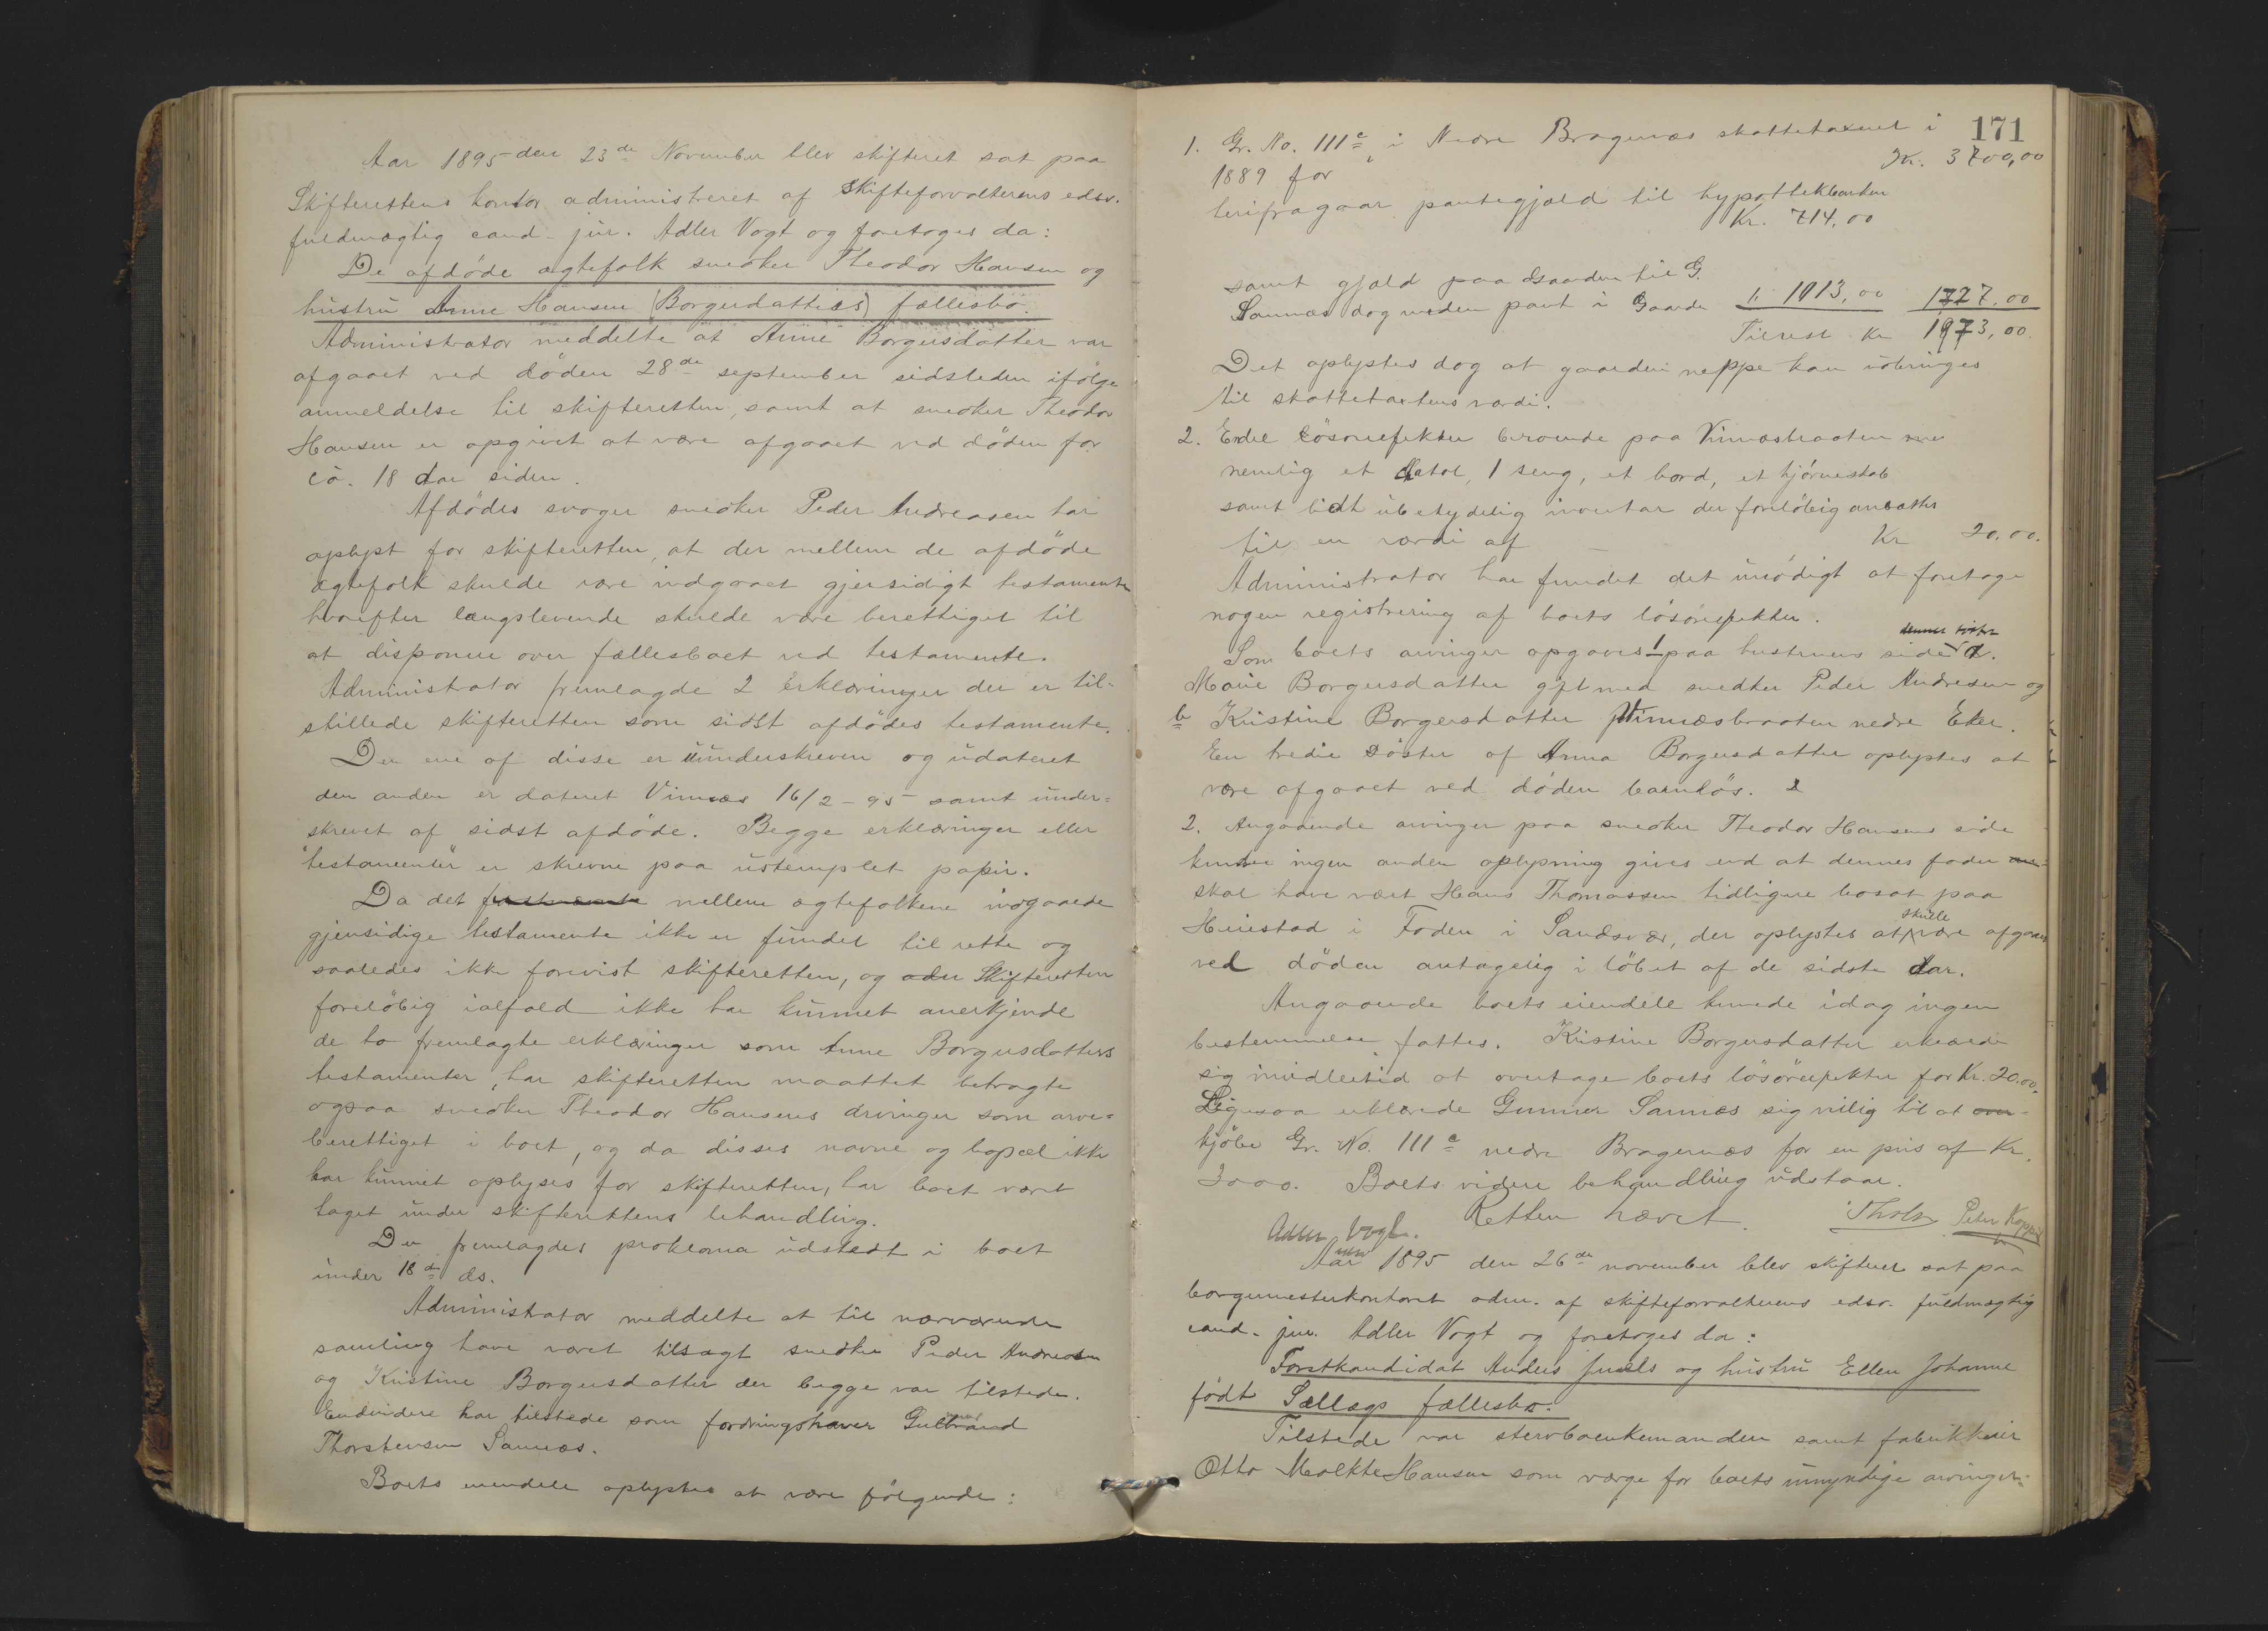 Aar 1895 den 23de November blev skifteret sat paa
Skifterettens kontor administreret af Skifteforvalterens edsv.
fuldmægtig cand. jur. Adler Vogt og foretoges da:
De afdøde ægtefolk snedker Theodor Hansen og
hustru Anne Hansen (Borgersdatters) fællesbo.
Administrator meddelte at Anne Borgersdatter var
afgaaet ved døden 28de september sidstleden ifølge
anmeldelse til skifteretten, samt at snedker Theodor
Hansen er opgivet at være afgaaet ved døden for
ca. 18 Aar siden.
Afdødes svoger snedker Peder Andreasen har
oplyst for skifteretten, at der mellem de afdøde
ægtefolk skulde være indgaaet gjensidigt testamente
hvorefter længstlevende skulde være berettiget til
at disponere over fællesboet ved testamente.
Administrator fremlagde 2 Erklæringer der er til-
stillede skifteretten som sidst afdødes testamente.
Den ene af disse er uunderskreven og udateret
den anden er dateret Vinnæs 16/2-95 samt under-
skrevet af sidst afdøde. Begge erklæringer eller
"testamenter" er skrevne paa ustemplet papir.
Da det mellem ægtefolkene indgaaede
gjensidige testamente ikke er fundet til rette og
saaledes ikke forevist skifteretten, og Skifteretten
foreløbig ialfald ikke har kunnet anerkjende
de to fremlagte erklæringer som Anne Borgersdatters
testamenter, har skifteretten maattet betragte
ogsaa snedker Theodor Hansens arvinger som arve-
berettiget i boet, og da disses navne og bopæl ikke
har kunnet oplyses for skifteretten, har boet været
taget under skifterettens behandling.
Der fremlagdes proklama udstedt i boet
under 18de ds.
Administrator meddelte at til nærværende
samling have været tilsagt snedker Peder Andreasen
og Kristine Borgersdatter der begge var tilstede.
Endvidere har tilstede som fordringshaver
Thorstensen Sannæs.
Boets eiendele oplystes at være følgende:
171
1. Gr. No. 111c i Nedre Bragernæs skattetaxeret i
1889 for Kr. 3700,00
herifragaar pantegjæld til hypothekbanken
Kr. 714,00
samt gjæld paa Gaarden til G.
Sannæs dog uden pant i Gaarden " 1013,00 1727.00
Tilrest Kr 1973,00.
Det oplystes dog at gaarden neppe kan udbringes
til skattetaxtens værdi.
2. Endel løsøreefekter beroende paa Vinnæsbraaten
nemlig et stol, 1 seng, et bord, et hjørneskab
samt lidt ubetydelig inventar der foreløbig ansættes
til en værdi af Kr 20.00.
Administrator har fundet det unødigt at foretage
nogen registrering af boets løsøreefekter.
Som boets arvinger opgaves 1 paa hustruens side a.
Marie Borgersdatter gift med snedker Peder Andresen og
b Kristine Borgersdatter Vinnæsbraaten nedre Eker.
En tredie søster af Anna Borgersdatter oplystes at
være afgaaet ved døden barnløs.
2. Angaaende arvinger paa snedker Theodor Hansens side
kunde ingen anden oplysning gives end at dennes fader
skal have været Hans Thomassen tidligere bosat paa
i Foden i Sandsvær, der oplystes at skulle være afgaaet
ved døden antagelig i løbet af de sidste Aar.
Angaaende boets eiendele kunde idag ingen
bestemmelse fattes. Kristine Borgersdatter erklærede
sig imidlertid at overtage boets løsøreefekter for Kr. 20.00.
Ligesaa erklærede Gunner Sannæs sig villig til at
kjøbe Gr. No. 111c nedre Bragernæs for en pris af Kr.
3000. Boets videre behandling udstaar.
Retten hævet.
Adler Vogt.
Aar 1895 den 26de november blev skifteret sat paa
borgermesterkontoret adm. af skifteforvalterens edsv. fuldmægtig
cand. jur. Adler Vogt og foretoges da:
Forstkandidat Anders Juells og hustru Ellen Johanne
født Sællægs fællesbo.
Tilstede var stervboenkemanden samt fabrikkeier
Otto Molkte Hansen som værge for boets umyndige arvinger.